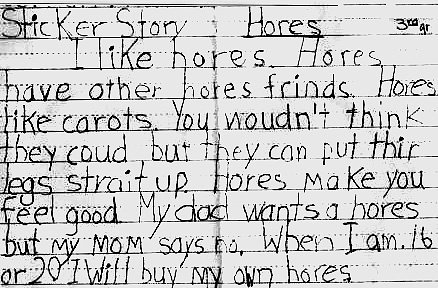 Sticker Story Hores 3rd gr
I like hores. Hores
have other hores frinds. Hores
like carots. You woudn't think
they coud but they can put thir
legs strait up. Hores make you
feel good. My dad wants a hores
but my mom says no. When I am 16
or 20 I will buy my own hores